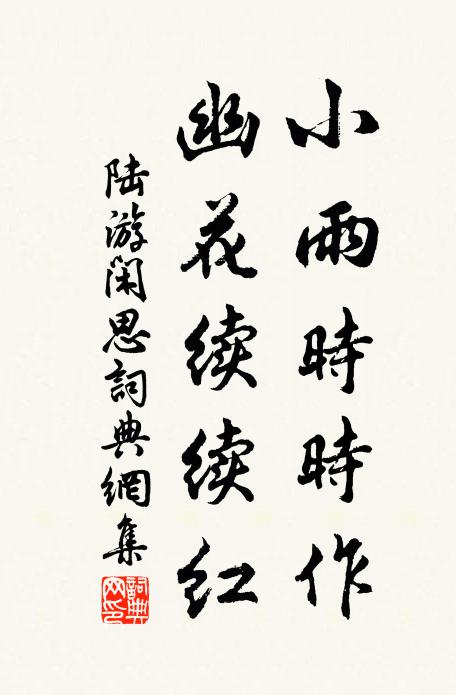 小雨時時作
幽花续续红
陆游閑思詞典網集
詞典網印